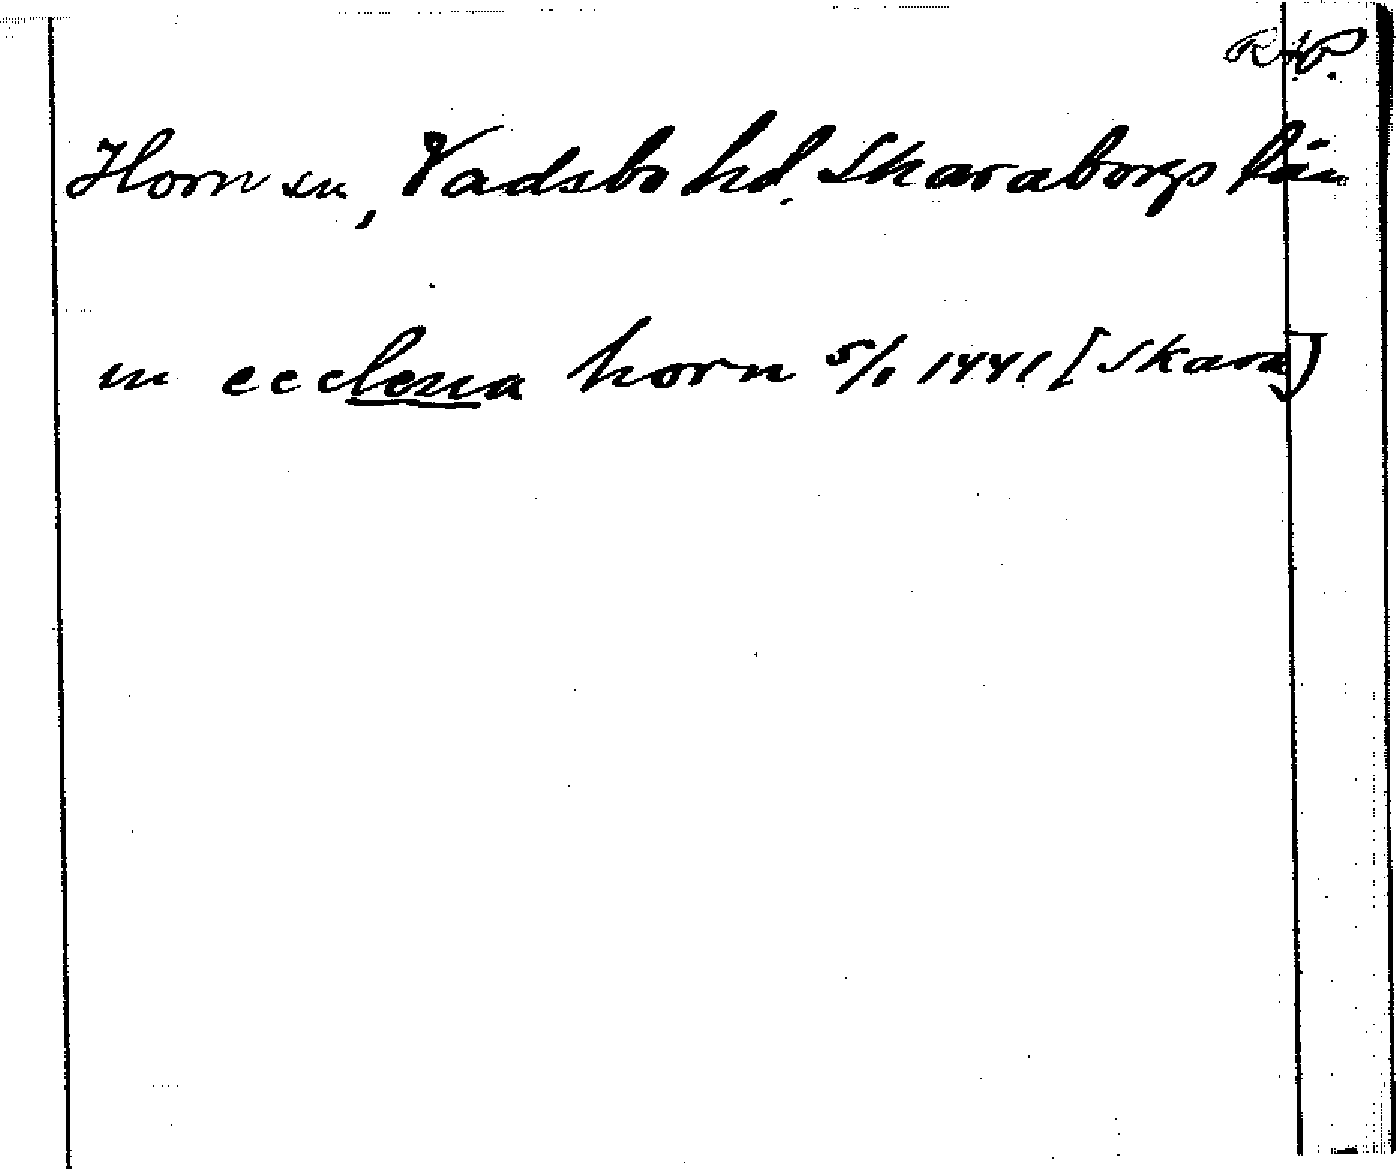 RAP.
Horn sn, Vadsbo hd. Skaraborgs län
in ecclesia horn 5/1 1441 [Skara]